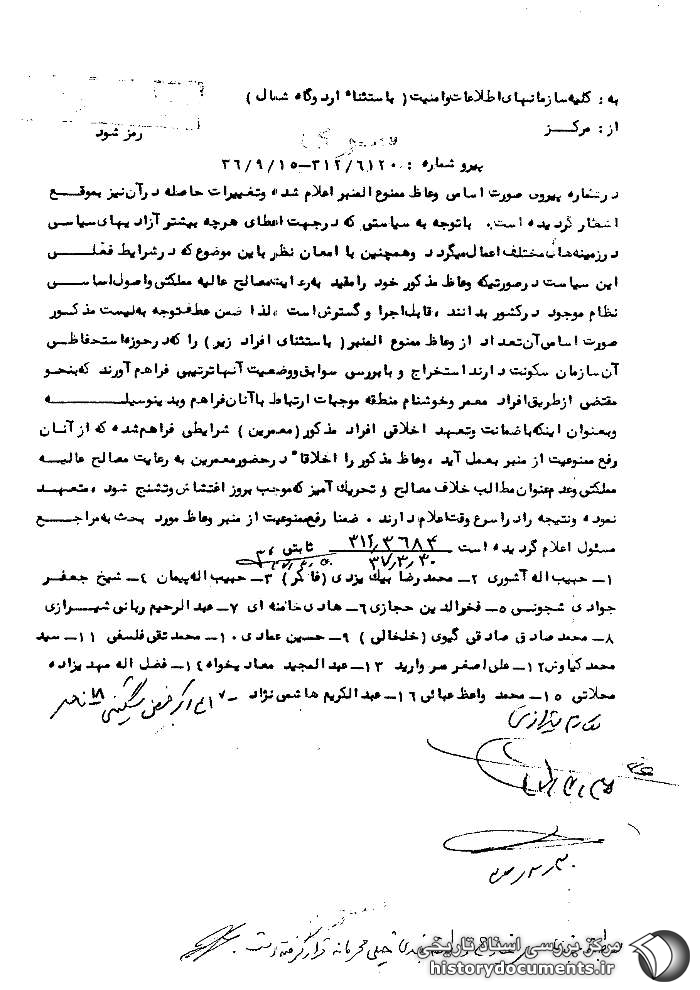 به : کلیه سازمانهای اطلاعات و امنیت ( باستثناء اردوگاه شمال )
از : مرکز
رمز شود
پیرو شماره : ۳۱۲/۶۱۲۰-۳۶/۹/۱۵
در شماره پیروی صورت اسامی وعاظ ممنوع المنبر اعلام شده و تغییرات حاصله در آن نیز بموقع
اشعار گردیده است . باتوجه به سیاستی که در جهت اعطای هرچه بیشتر آزادیهای سیاسی
در زمینه های مختلف اعمال میگردد و همچنین با امعان نظر باین موضوع که در شرایط فعلی
این سیاست در صورتیکه وعاظ مذکور خود را مقید به رعایت مصالح عالیه مملکتی و اصول اساسی
نظام موجود در کشور بدانند ، قابل اجرا و گسترش است ، لذا ضمن عطف توجه به لیست مذکور
صورت اسامی آن تعداد از وعاظ ممنوع المنبر ( باستثنای افراد زیر ) را که در حوزه استحفاظی
آن سازمان سکونت دارند استخراج و با بررسی سوابق و وضعیت آنها ترتیبی فراهم آورند که بنحو
مقتضی از طریق افراد معمر و خوشنام منطقه موجبات ارتباط با آنان فراهم و بدینوسیله
و بعنوان اینکه با ضمانت و تعهد اخلاقی افراد مذکور ( معمرین ) شرایطی فراهم شده که از آنان
رفع ممنوعیت از منبر بعمل آید ، وعاظ مذکور را اخلاقاً در حضور معمرین به رعایت مصالح عالیه
مملکتی و عدم عنوان مطالب خلاف مصالح و تحریک آمیز که موجب بروز اغتشاش و تشنج شود ، متعهد
نموده و نتیجه را در اسرع وقت اعلام دارند . ضمنا رفع ممنوعیت از منبر وعاظ مورد بحث به مراجع
مسئول اعلام گردیده است ۳۱۲/۳۶۸۴ ثابتی
۳۷/۳/۳۰
۱- حبیب اله آشوری ۲- محمد رضا بیک یزدی (فاکر) ۳- حبیب اله پیمان ۴- شیخ جعفر
جوادی شجونی ۵- فخرالدین حجازی ۶- هادی خامنه ای ۷- عبدالرحیم ربانی شیرازی
۸- محمد صادق صادقی گیوی (خلخالی) ۹- حسین عمادی ۱۰- محمد تقی فلسفی ۱۱- سید
محمد کیاوش ۱۲- علی اصغر مروارید ۱۳- عبدالمجید معادیخواه ۱۴- فضل اله مهدیزاده
محلاتی ۱۵- محمد واعظ عبائی ۱۶- عبدالکریم هاشمی نژاد ۱۷- ۱۸- ناصر
مکارم شیرازی
مرکز بررسی اسناد تاریخی
historydocuments.ir